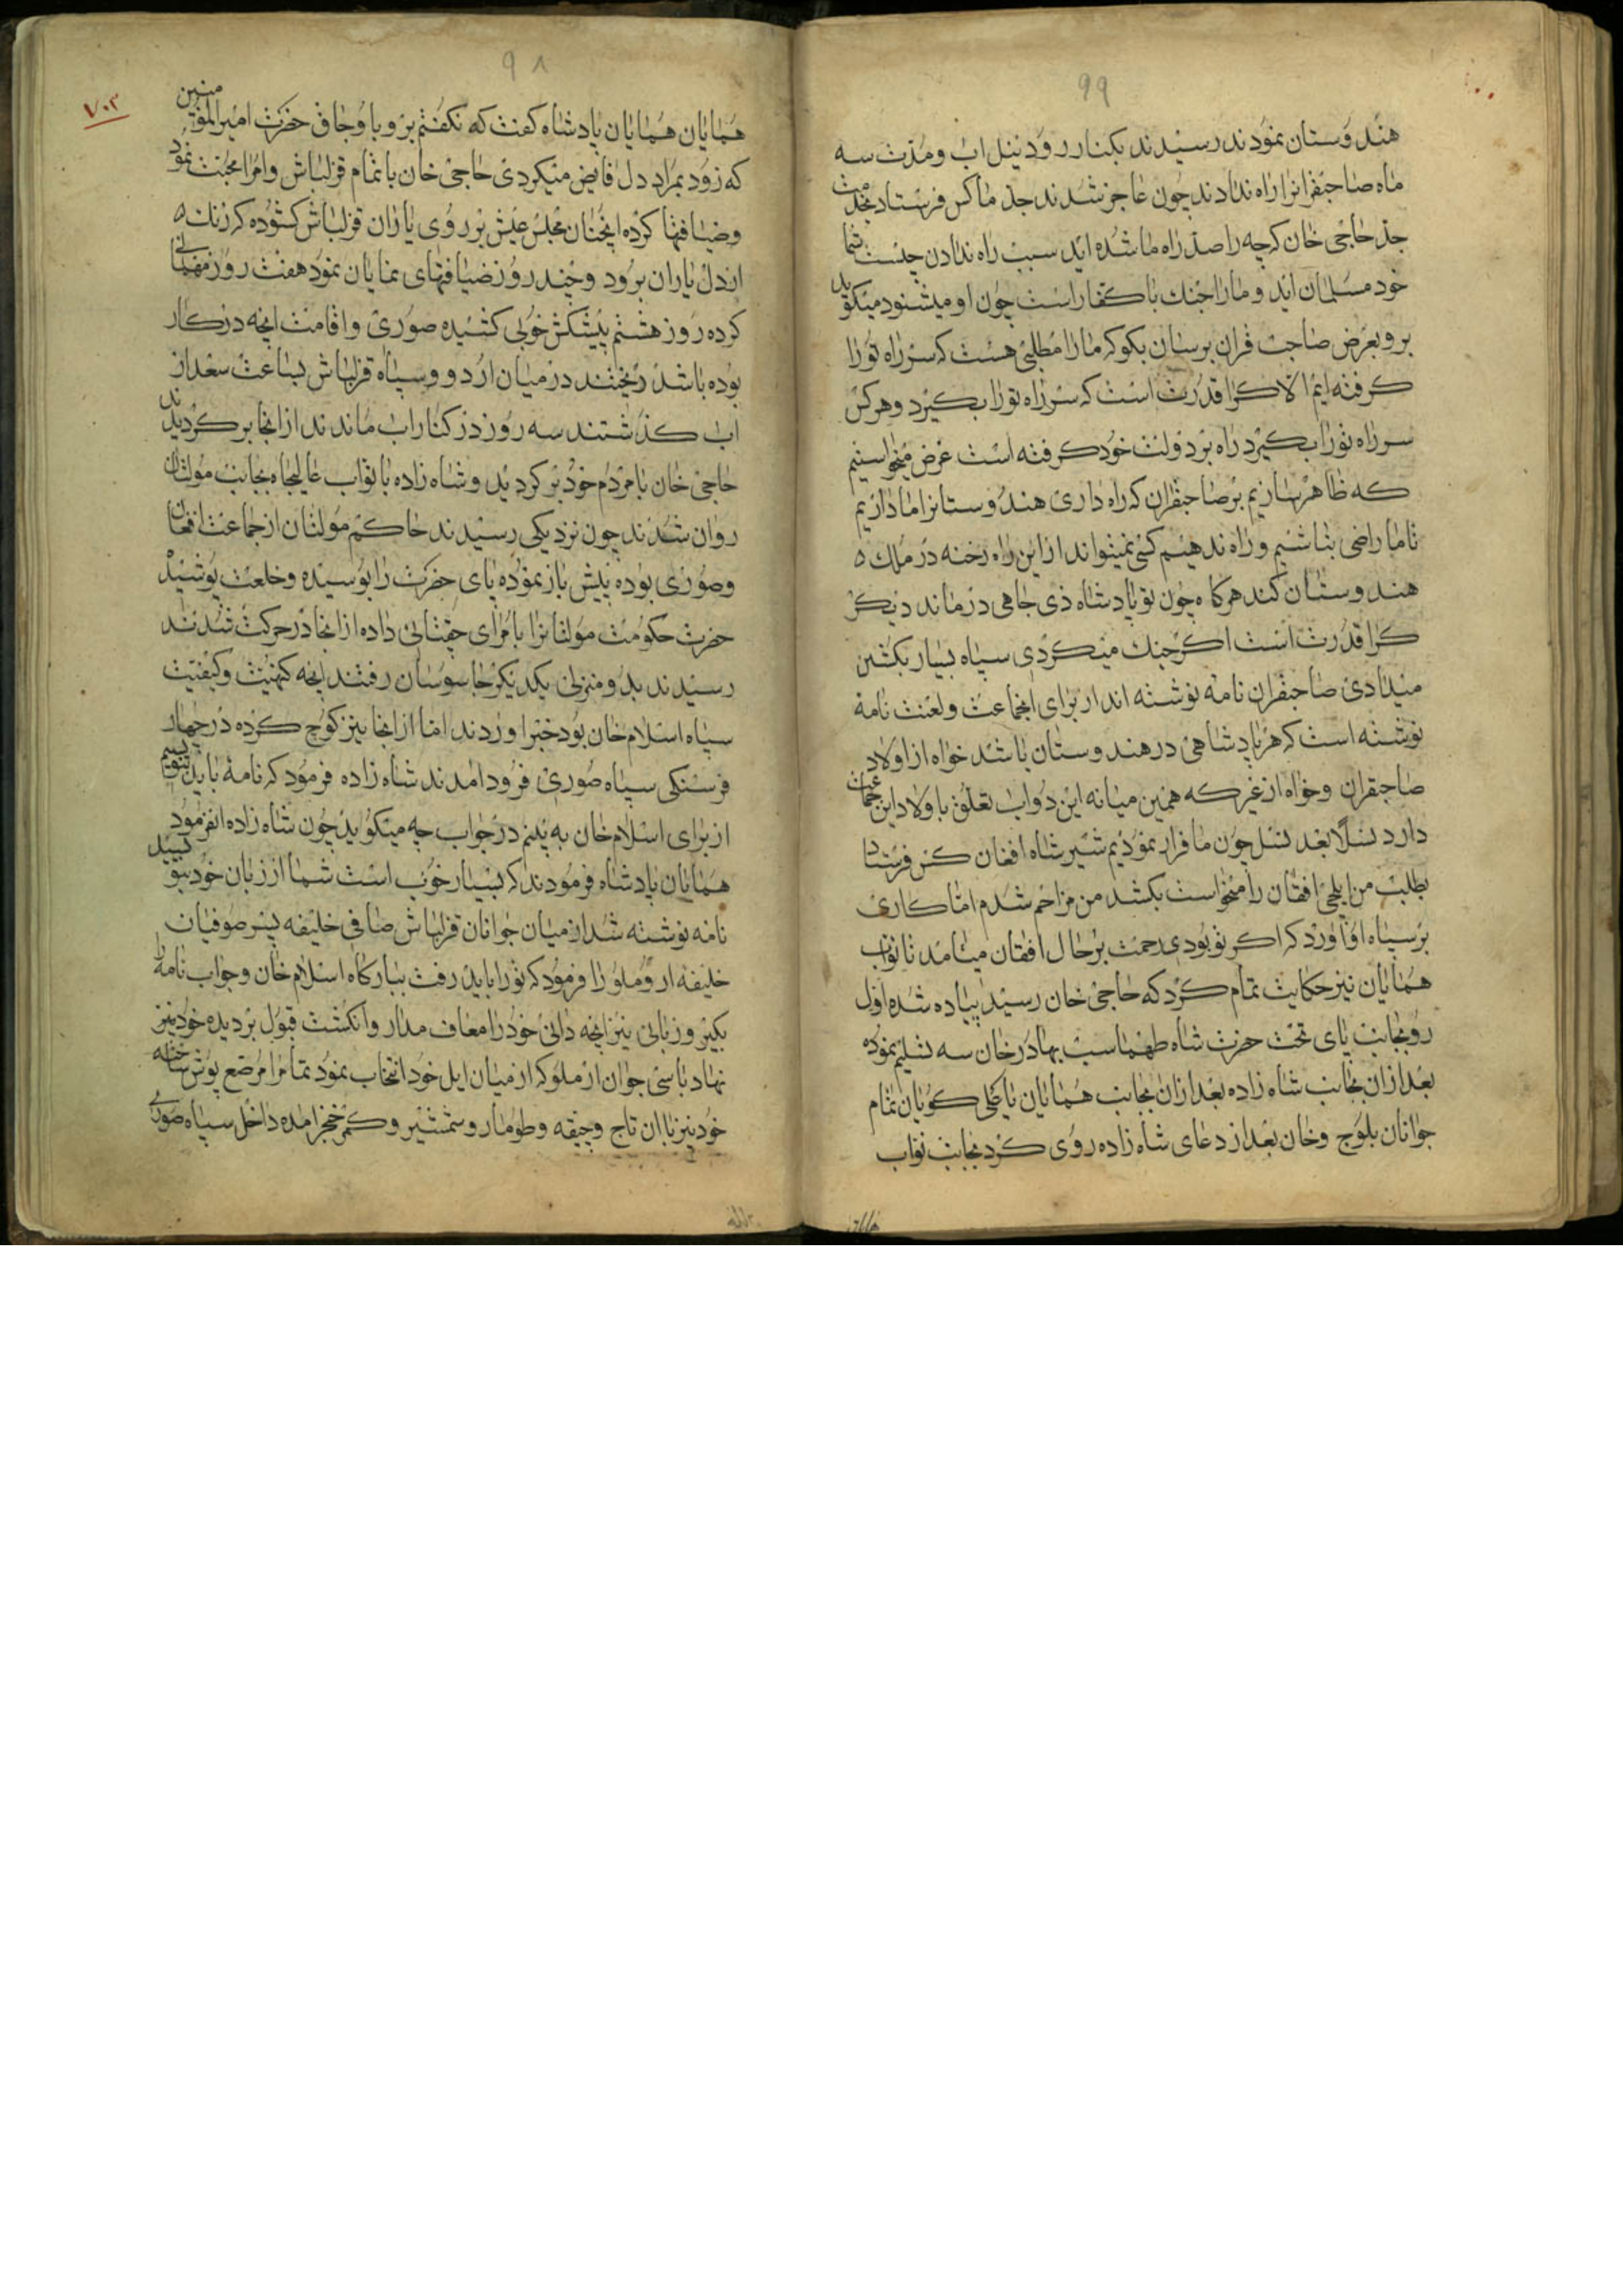 ۹۹
هند وستان نمودند رسیدند بکنار رود نیل اب و مدت سه
ماه صاحبقرانرا راه ندادند چون عاجز شدند جد ما کس فرستاد بخدمت
جد حاجی خان که چه را صد راه ما شده اید سبب راه ندادن چیست شما
خود مسلمان اید و ما را جنک با کفار است چون او میشنود میکوید
برو بعرض صاحب قران برسان بکو که ما را مطلبی هست که سر راه تو را
کرفته ایم الا کرا قدرت است که سر راه تو را بکیرد و هر کس
سر راه تو را بکیرد راه بر دولت خود کرفته است غرض میخواستیم
که ظاهر سازیم بر صاحبقران که راه داری هندوستانرا ما داریم
تا ما راضی نباشیم و راه ندهیم کسی نمیتواند از این راه رخنه در ملک
هند وستان کند هرکاه چون تو پادشاه ذی جاهی درماند دیکر
کرا قدرت است اکر جنک میکردی سپاه بسیار بکشتن
میدادی صاحبقران نامه نوشته اند از برای انجماعت و لعنت نامه
نوشته است که هر پادشاهی در هند وستان باشد خواه از اولاد
صاحبقران و خواه از غیر که همین میانه این دواب تعلق با ولاد این جماعت
دارد نسلا بعد نسل چون ما فرار نمودیم شیر شاه افغان کس فرستاد
بطلب من ایلچی افقان را میخواست بکشد من مزاحم شدم اما کاری
بر سپاه او اورد که اکر تو بودی رحمت بر حال افقان میامد تا نواب
همایان نیز حکایت تمام کرد که حاجی خان رسید پیاده شده اول
رو بجانب پای تخت حضرت شاه طهماسب بهادر خان سه تسلیم نموده
بعد از ان بجانب شاه زاده بعد از ان بجانب همایان یا علی کویان تمام
جوانان بلوج و خان بعد از دعای شاه زاده روی کرد بجانب نواب
۹۸
۷۰۳
همایان همایان پادشاه کفت که نکفتم برو با وجاق حضرت امیر المؤمنین
که زود بمراد دل فایض میکردی حاجی خان با تمام قزلباش و امرا محبت نمود
و ضیافتها کرده انچنان مجلس عیش بر روی یاران قزلباش کشوده که زنک
از دل یاران برود و چند روز ضیافتهای نمایان نمود هفت روز مهمانی
کرده روز هشتم پیشکش خوبی کشیده صوری و اقامت انچه در کار
بوده باشد ریختند در میان اردو و سپاه قزلباش بساعت سعد از
اب کذشتند سه روز در کنار اب ماندند از انجا بر کردیدند
حاجی خان با مردم خود بر کردید و شاه زاده با نواب عالیجاه بجانب مولتان
روان شدند چون نزدیکی رسیدند حاکم مولتان از جماعت افغان
و صوری بوده پیش باز نموده پای حضرت را بوسیده و خلعت پوشید
حضرت حکومت مولتانرا بامرای چقتائی داده از انجا در حرکت شدند
رسیدند بدو منزلی یکدیکر جاسوسان رفتند انچه کمیت و کیفیت
سپاه اسلام خان بود خبر اوردند اما از انجا نیز کوچ کرده در چهار
فرسنکی سپاه صوری فرود امدند شاه زاده فرمود که نامه باید بنویسیم
از برای اسلام خان به بینم در جواب چه میکواید چون شاه زاده انفرمود
همایان پادشاه فرمودند که بسیار خوب است شما از زبان خود بنویسید
نامه نوشته شد از میان جوانان قزلباش صافی خلیفه پسر صوفیان
خلیفه اروملو را فرمود که تو را باید رفت ببارکاه اسلام خان و جواب نامه را
بکیر و زبانی نیز انچه دانی خود را معاف مدار و انکشت قبول بر دیده خود نیز
نهاد با سی جوان ارملو که از میان ایل خود انتخاب نمود تمامرا مرصع پوش ساخته
خود نیز با ان تاج و جیقه و طومار و شمشیر و کمر خنجر امده داخل سپاه صوری